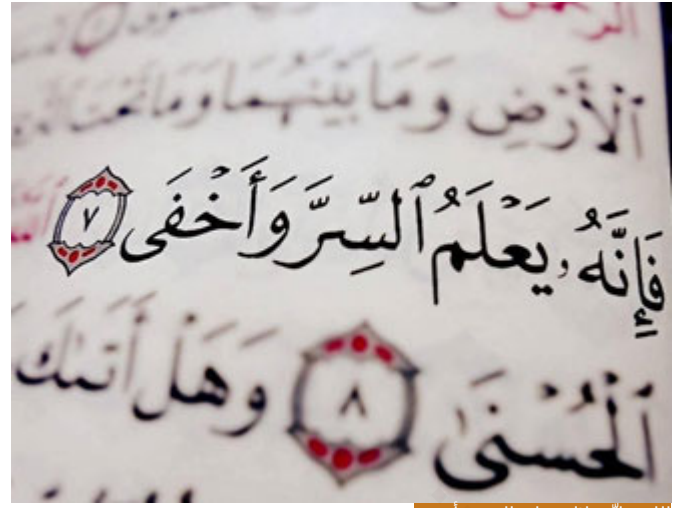 الرحمن
ٱلْأَرْضِ وَمَا بَيْنَهُمَا وَمَا تَحْتَ
فَإِنَّهُۥ يَعْلَمُ ٱلسِّرَّ وَأَخْفَى ٧
ٱلْحُسْنَىٰ ٨ وَهَلْ أَتَىٰكَ